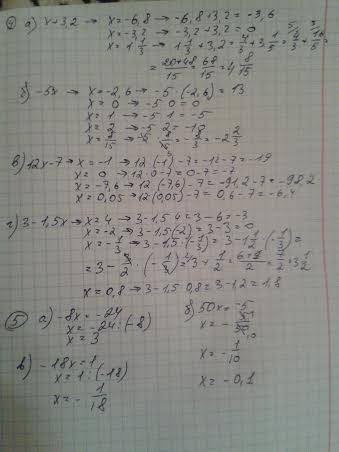 ④ а) x+3,2 → x=-6,8 → -6,8+3,2=-3,6
x=-3,2 → -3,2+3,2=0
x=1 1/3 → 1 1/3+3,2=4/3+3 1/5=4/3+16/5=
=20+48/15=68/15=4 8/15
б) -5x → x=-2,6 → -5·(-2,6)=13
x=0 → -5·0=0
x=1 → -5·1=-5
в) 12x-7 → x=-1 → 12·(-1)-7=-12-7=-19
x=0 → 12·0-7=0-7=-7
x=-7,6 → 12·(-7,6)-7=-91,2-7=-98,2
x=0,05 → 12·(0,05)-7=0,6-7=-6,4
г) 3-1,5x → x=4 → 3-1,5·4=3-6=-3
x=-2 → 3-1,5·(-2)=3-3=0
x=-1/3 → 3-1,5·(-1/3)=3-1 1/2·(-1/3)=
=3-3/2·(-1/3)=3+1/2=6+1/2=7/2=3 1/2
x=0,8 → 3-1,5·0,8=3-1,2=1,8
⑤ а) -8x=-24
x=-24:(-8)
x=3
б) 50x=-5
x=-5/50
x=-1/10
x=-0,1
в) -18x=1
x=1:(-18)
x=-1/18